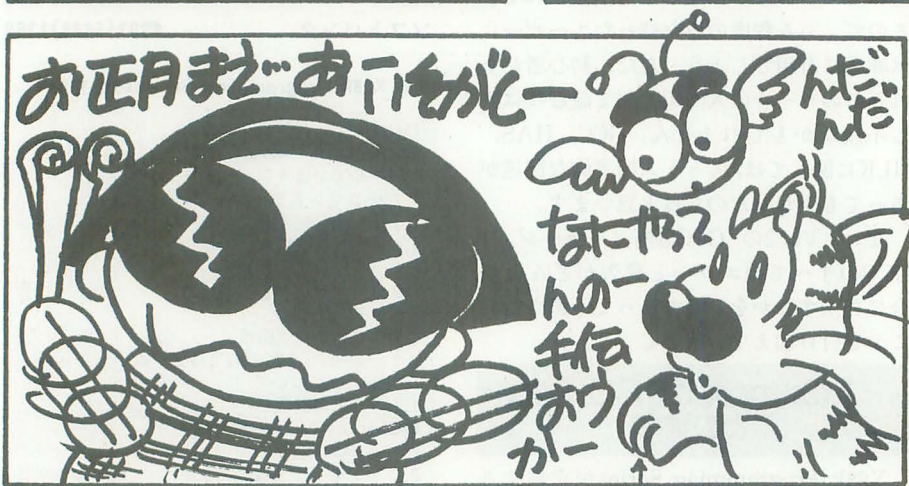 お正月まで…あーいそがしー
んだ
んだ
なにやって
んのー
手伝
おう
かー